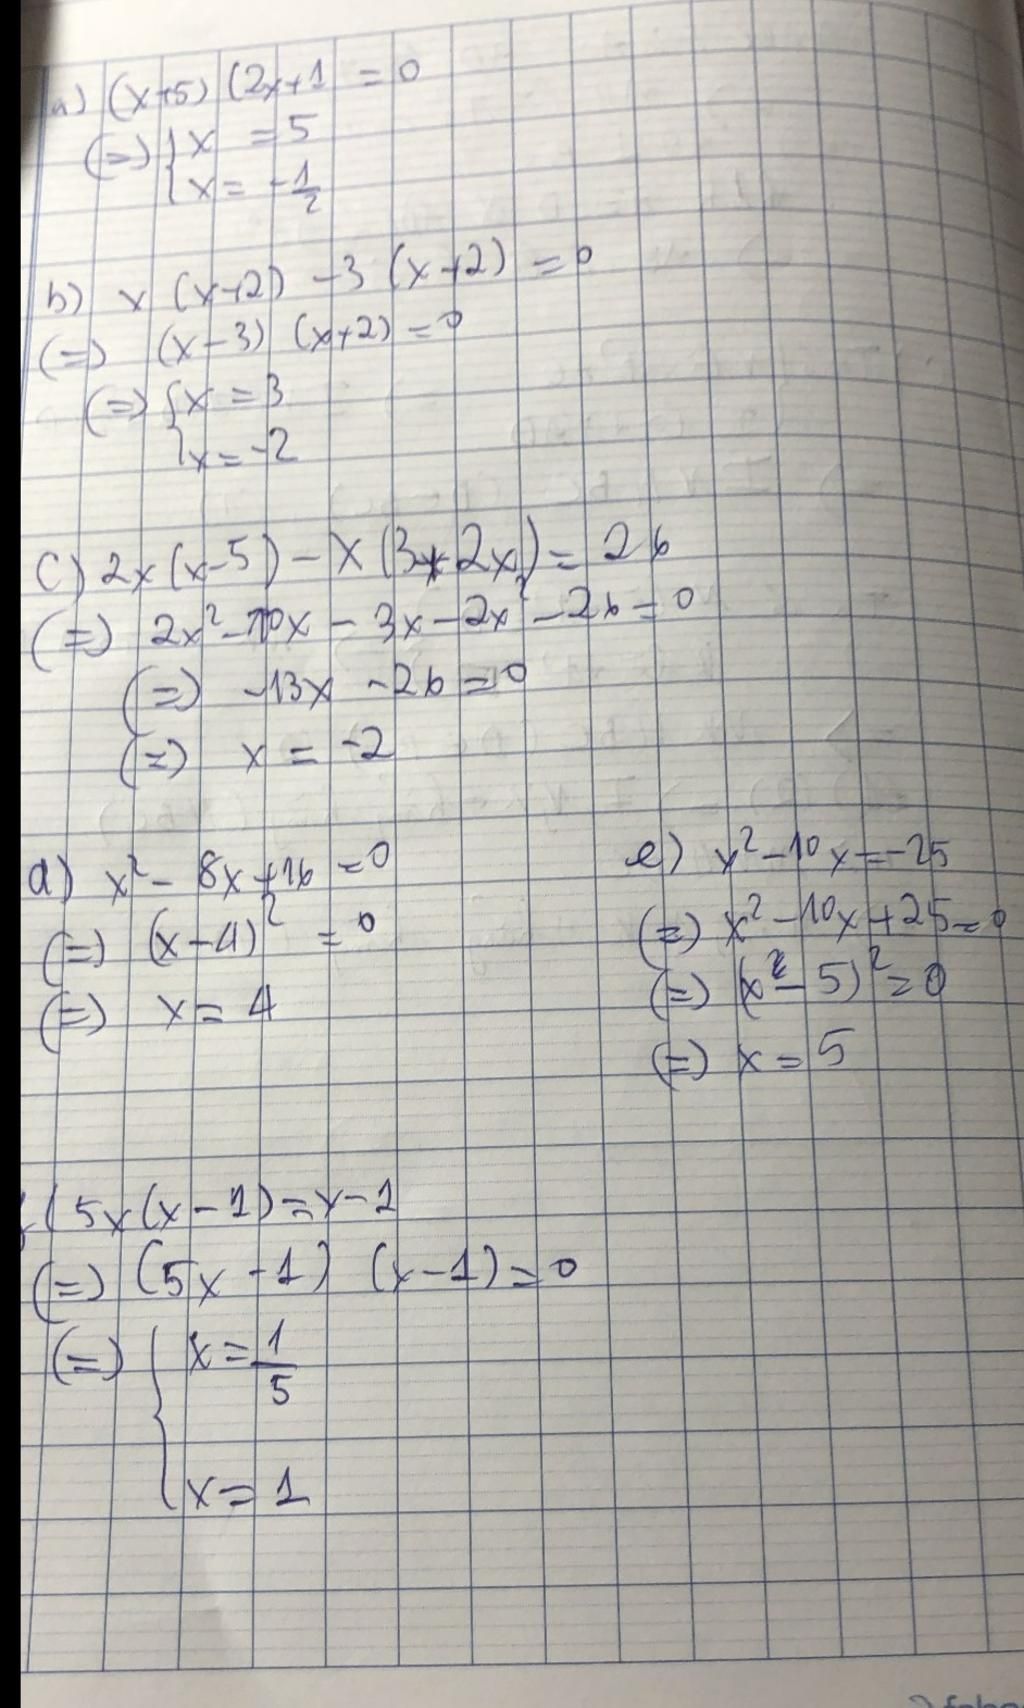 a) (x+5) (2x+1 = 0
(=) { x = 5
x = -1/2
b) x (x+2) - 3 (x+2) = 0
(=) (x-3) (x+2) = 0
(=) { x = 3
x = -2
c) 2x(x-5) - x(3+2x) = 26
(=) 2x² - 10x - 3x - 2x² - 26 = 0
(=) -13x - 26 = 0
(=) x = -2
d) x² - 8x + 16 = 0
(=) (x-4)² = 0
(=) x = 4
e) x² - 10x = -25
(=) x² - 10x + 25 = 0
(=) (x² - 5)² = 0
(=) x = 5
( 5x(x-1) = x-1
(=) (5x-1) (x-1) = 0
(=) { x = 1/5
x = 1